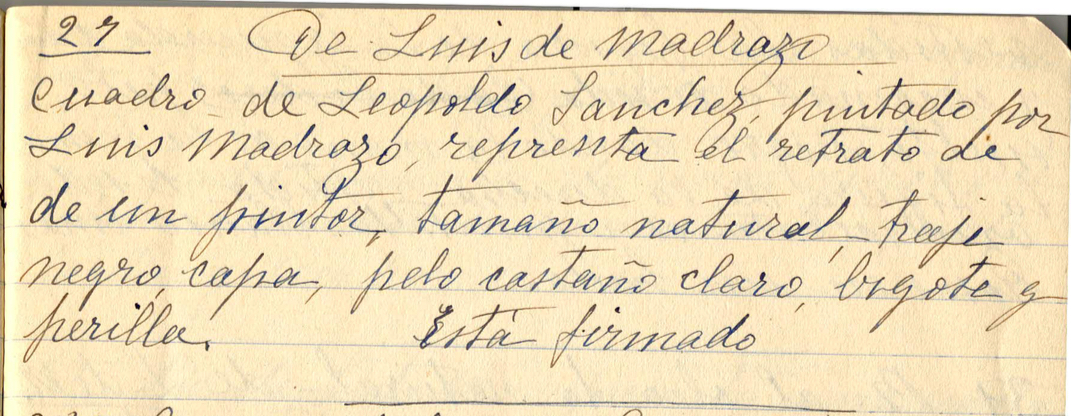 27 De Luis de Madrazo
Cuadro de Leopoldo Sanchez, pintado por
Luis Madrazo, represta el retrato de
de un pintor, tamaño natural, traje
negro, capa, pelo castaño claro, bigote y
perilla. Está firmado